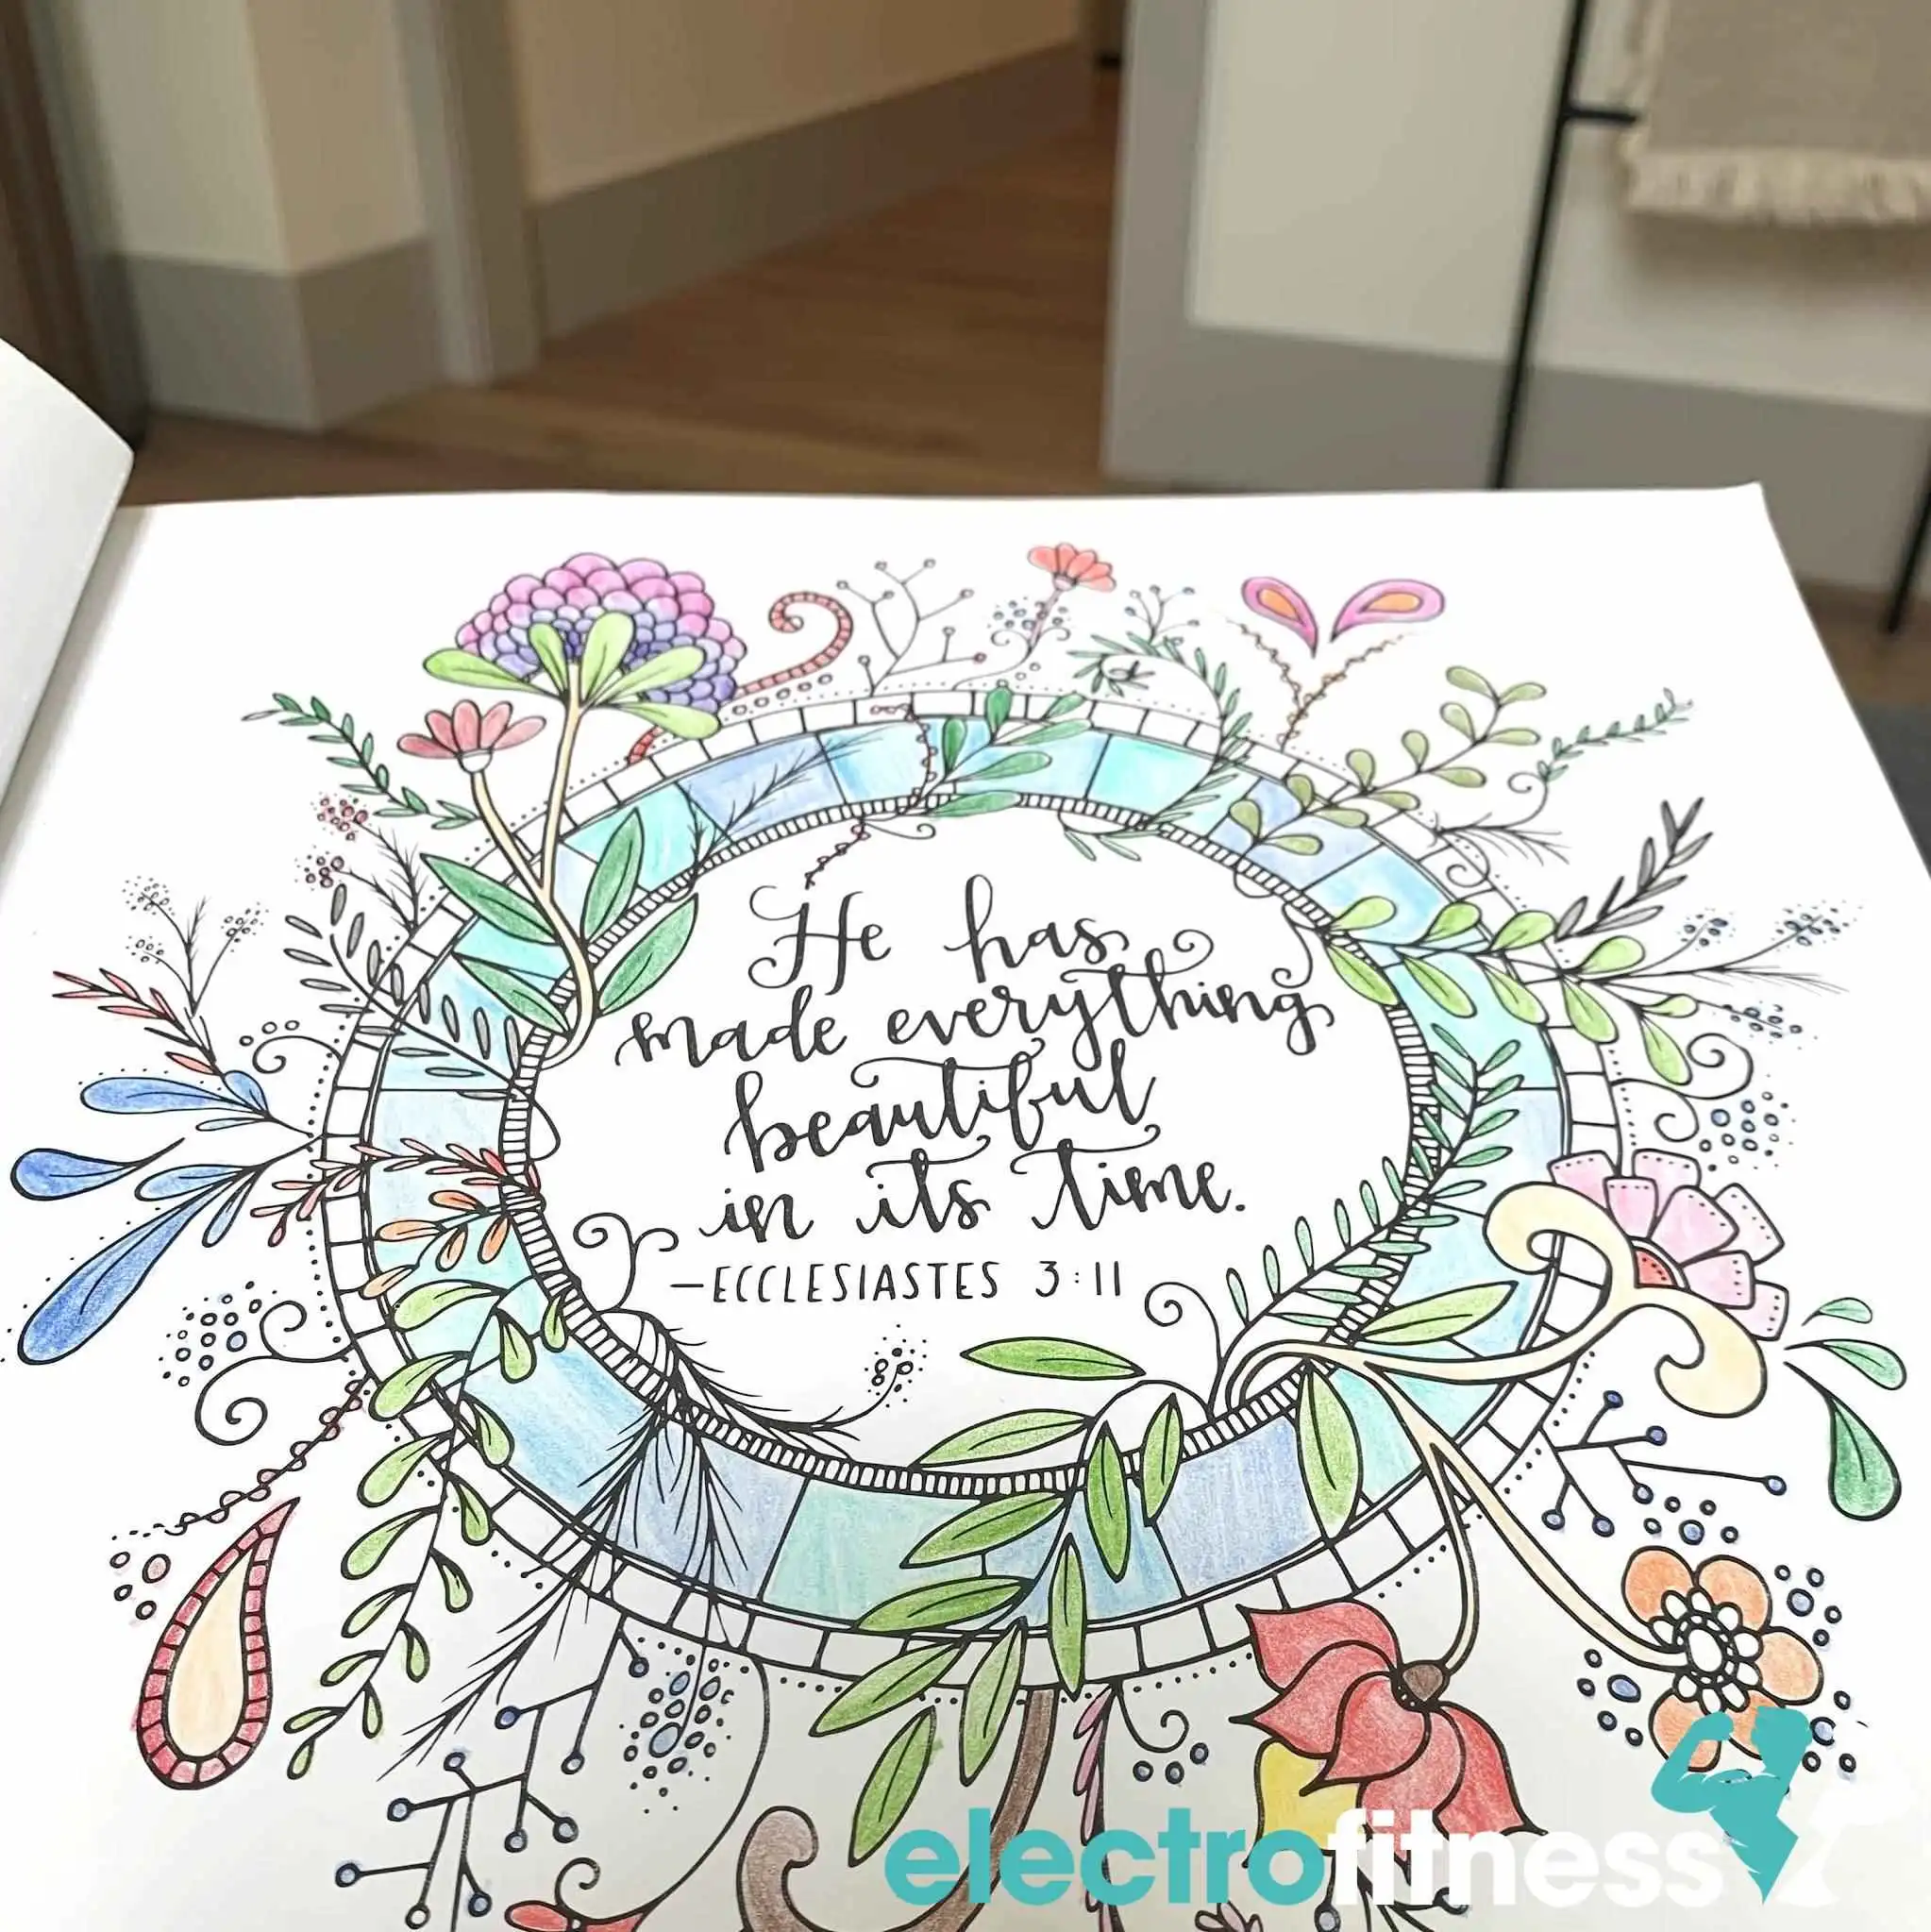 He has
made everything
beautiful
in its time.
—ECCLESIASTES 3:11
electrofitness